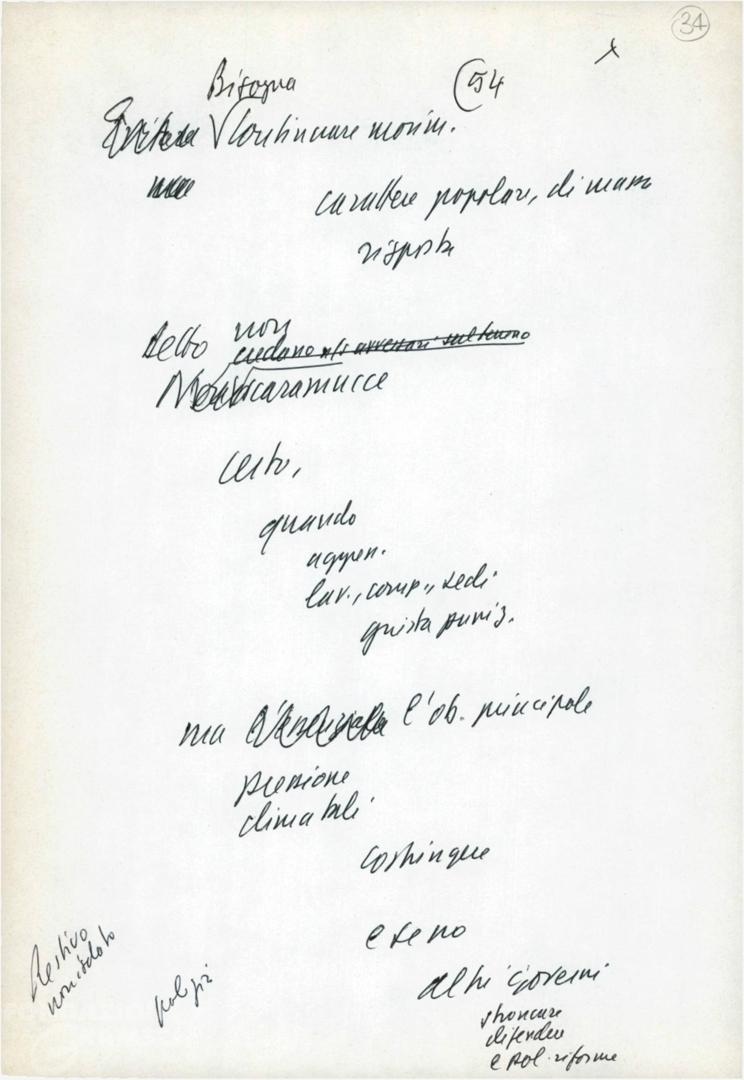 34
Bisogna (54
continuare movim.
carattere popolare, di massa
risposta
Detto non
credano gli avversari sul terreno
scaramucce
certo,
quando
aggren.
lav., comp., sedi
giusta puniz.
ma l'ob. principale
pressione
clima tali
costringere
e se no
altri governi
stroncare
difendere
e pol. riforme
Restivo
polizia